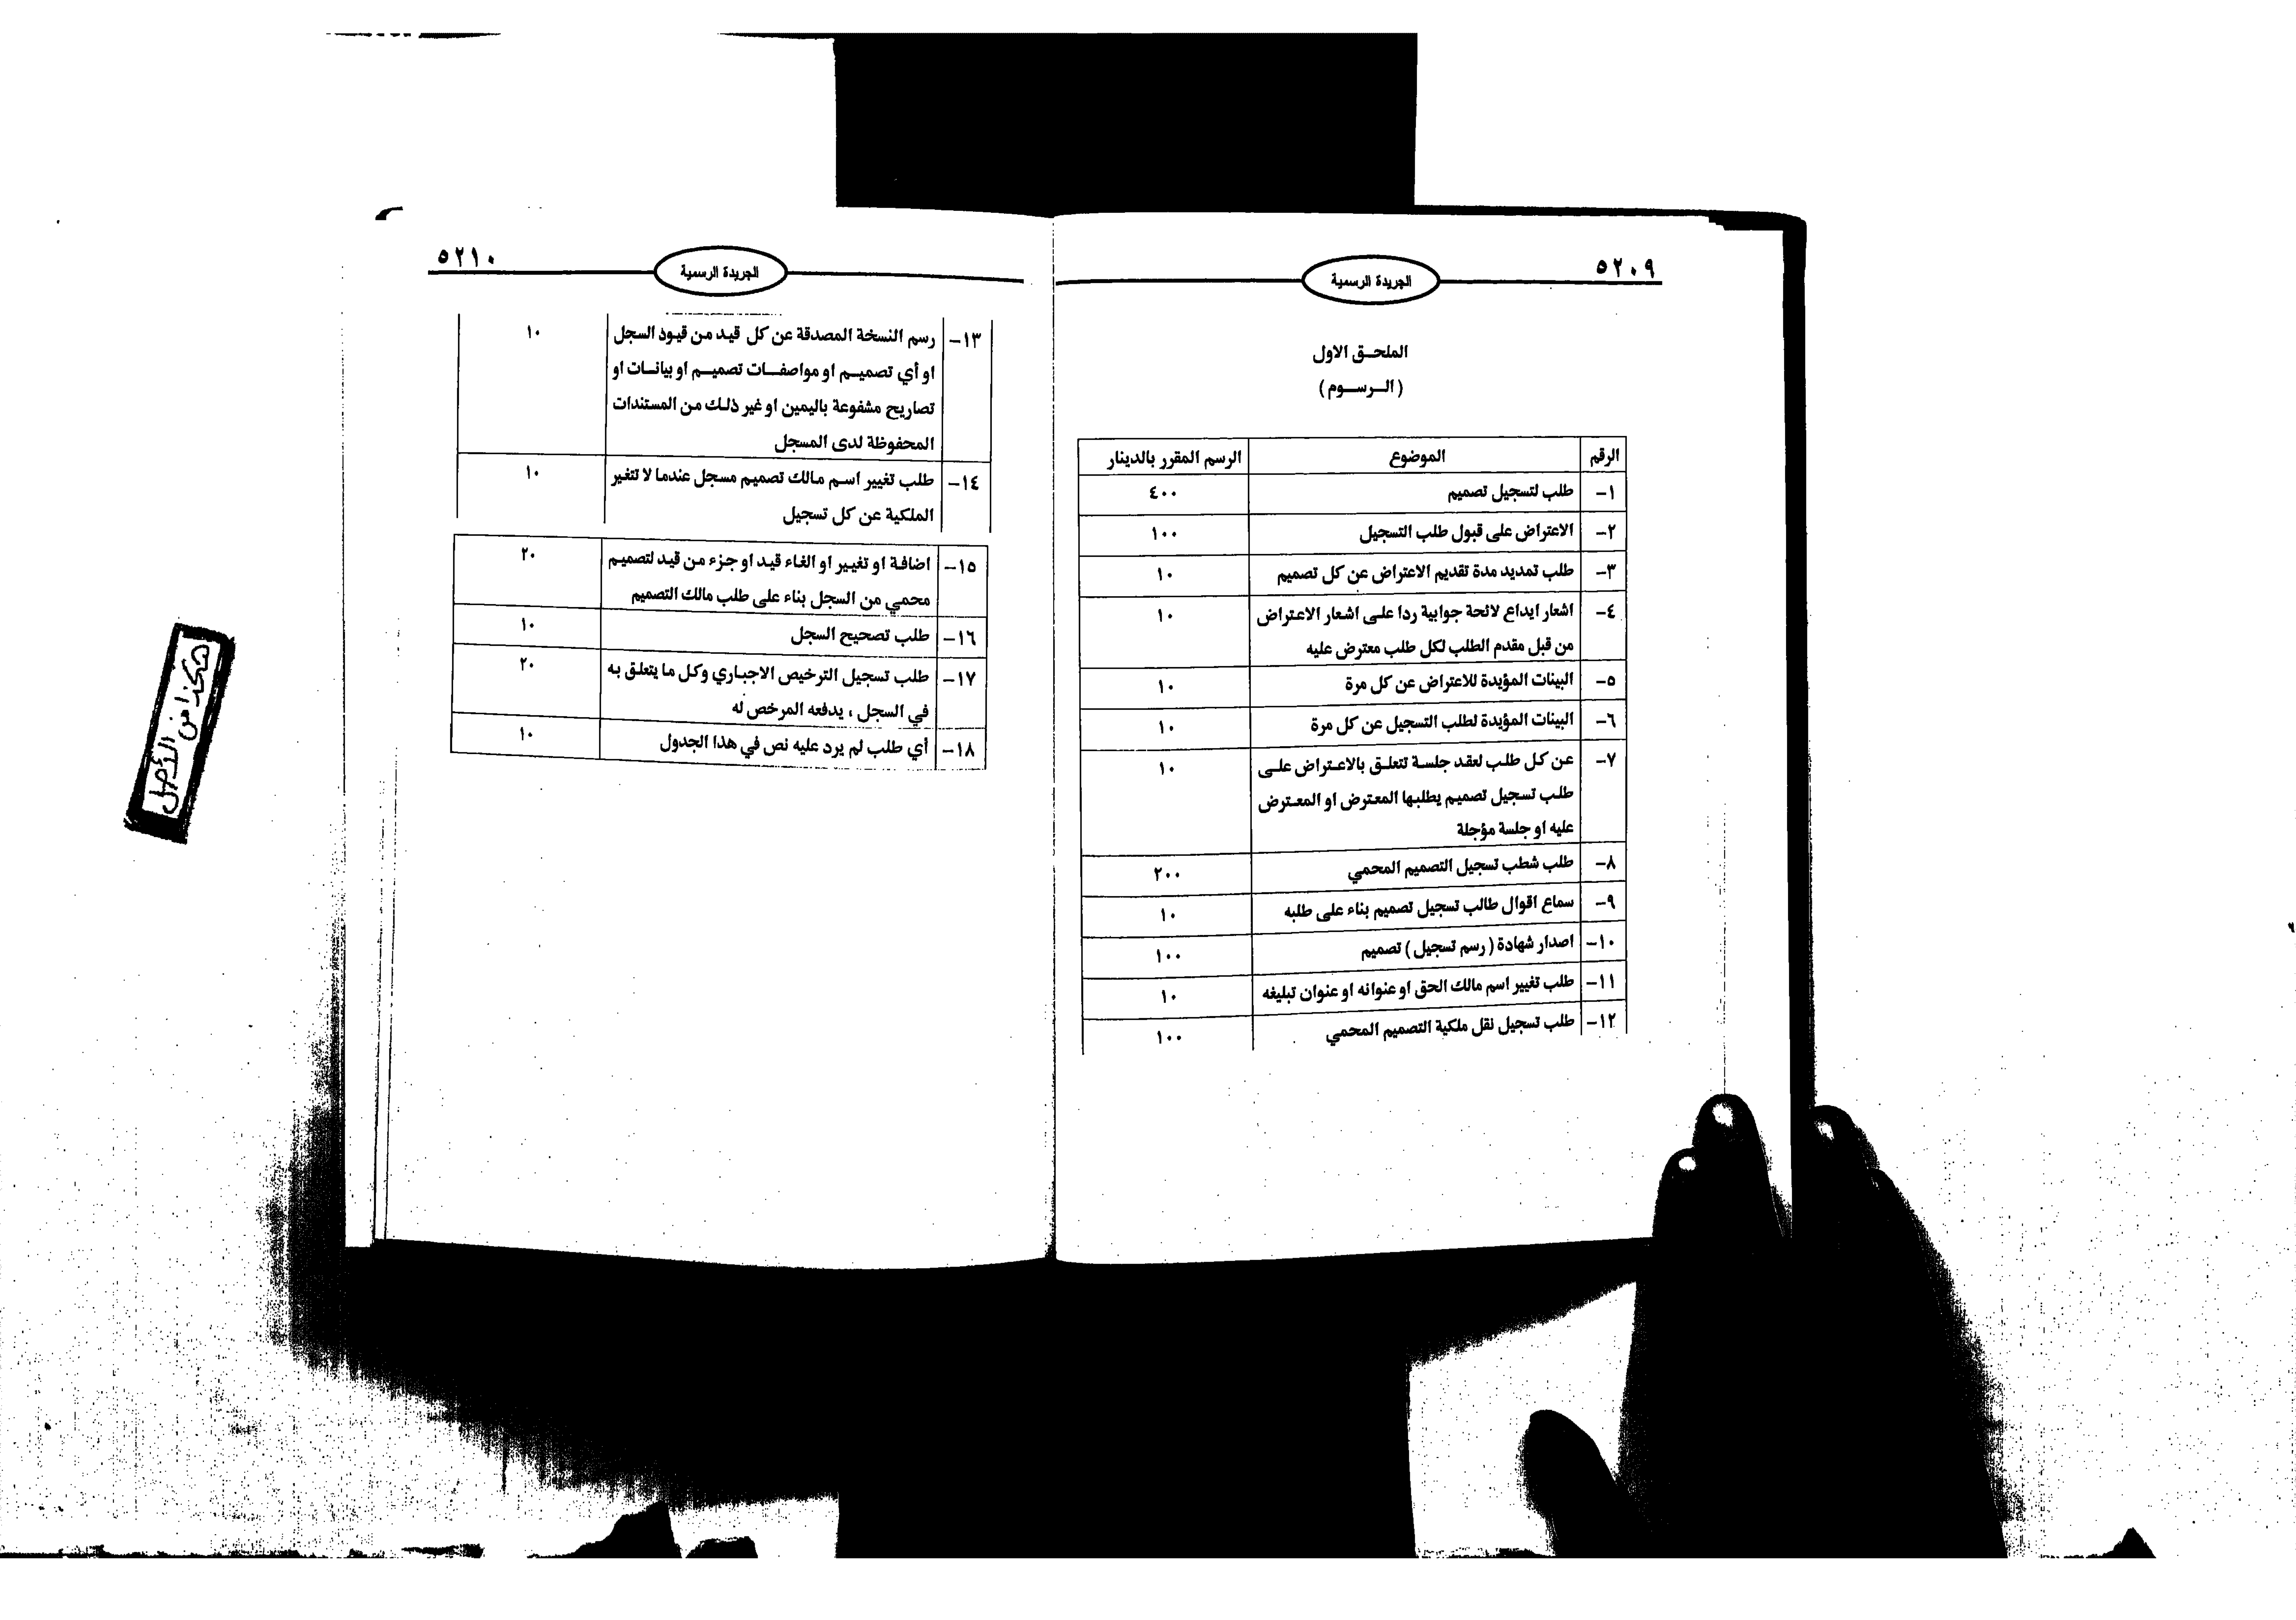 ٥٢٠٩
الجريدة الرسمية
الملحــق الاول
( الـــرســـوم )
الرقم الموضوع الرسم المقرر بالدينار
١- طلب لتسجيل تصميم ٤٠٠
٢- الاعتراض على قبول طلب التسجيل ١٠٠
٣- طلب تمديد مدة تقديم الاعتراض عن كل تصميم ١٠
٤- اشعار ايداع لائحة جوابية ردا على اشعار الاعتراض ١٠
من قبل مقدم الطلب لكل طلب معترض عليه
٥- البينات المؤيدة للاعتراض عن كل مرة ١٠
٦- البينات المؤيدة لطلب التسجيل عن كل مرة ١٠
٧- عن كل طلب لعقد جلسة تتعلق بالاعتراض على ١٠
طلب تسجيل تصميم يطلبها المعترض او المعترض
عليه او جلسة مؤجلة
٨- طلب شطب تسجيل التصميم المحمي ٢٠٠
٩- سماع اقوال طالب تسجيل تصميم بناء على طلبه ١٠
١٠- اصدار شهادة ( رسم تسجيل ) تصميم ١٠٠
١١- طلب تغيير اسم مالك الحق او عنوانه او عنوان تبليغه ١٠
١٢- طلب تسجيل نقل ملكية التصميم المحمي ١٠٠
٥٢١٠
الجريدة الرسمية
١٣- رسم النسخة المصدقة عن كل قيد من قيود السجل ١٠
او أي تصميم او مواصفات تصميم او بيانات او
تصاريح مشفوعة باليمين او غير ذلك من المستندات
المحفوظة لدى المسجل
١٤- طلب تغيير اسم مالك تصميم مسجل عندما لا تتغير ١٠
الملكية عن كل تسجيل
١٥- اضافة او تغيير او الغاء قيد او جزء من قيد لتصميم ٢٠
محمي من السجل بناء على طلب مالك التصميم
١٦- طلب تصحيح السجل ١٠
١٧- طلب تسجيل الترخيص الاجباري وكل ما يتعلق به ٢٠
في السجل ، يدفعه المرخص له
١٨- أي طلب لم يرد عليه نص في هذا الجدول ١٠
هكذا من
الأصل